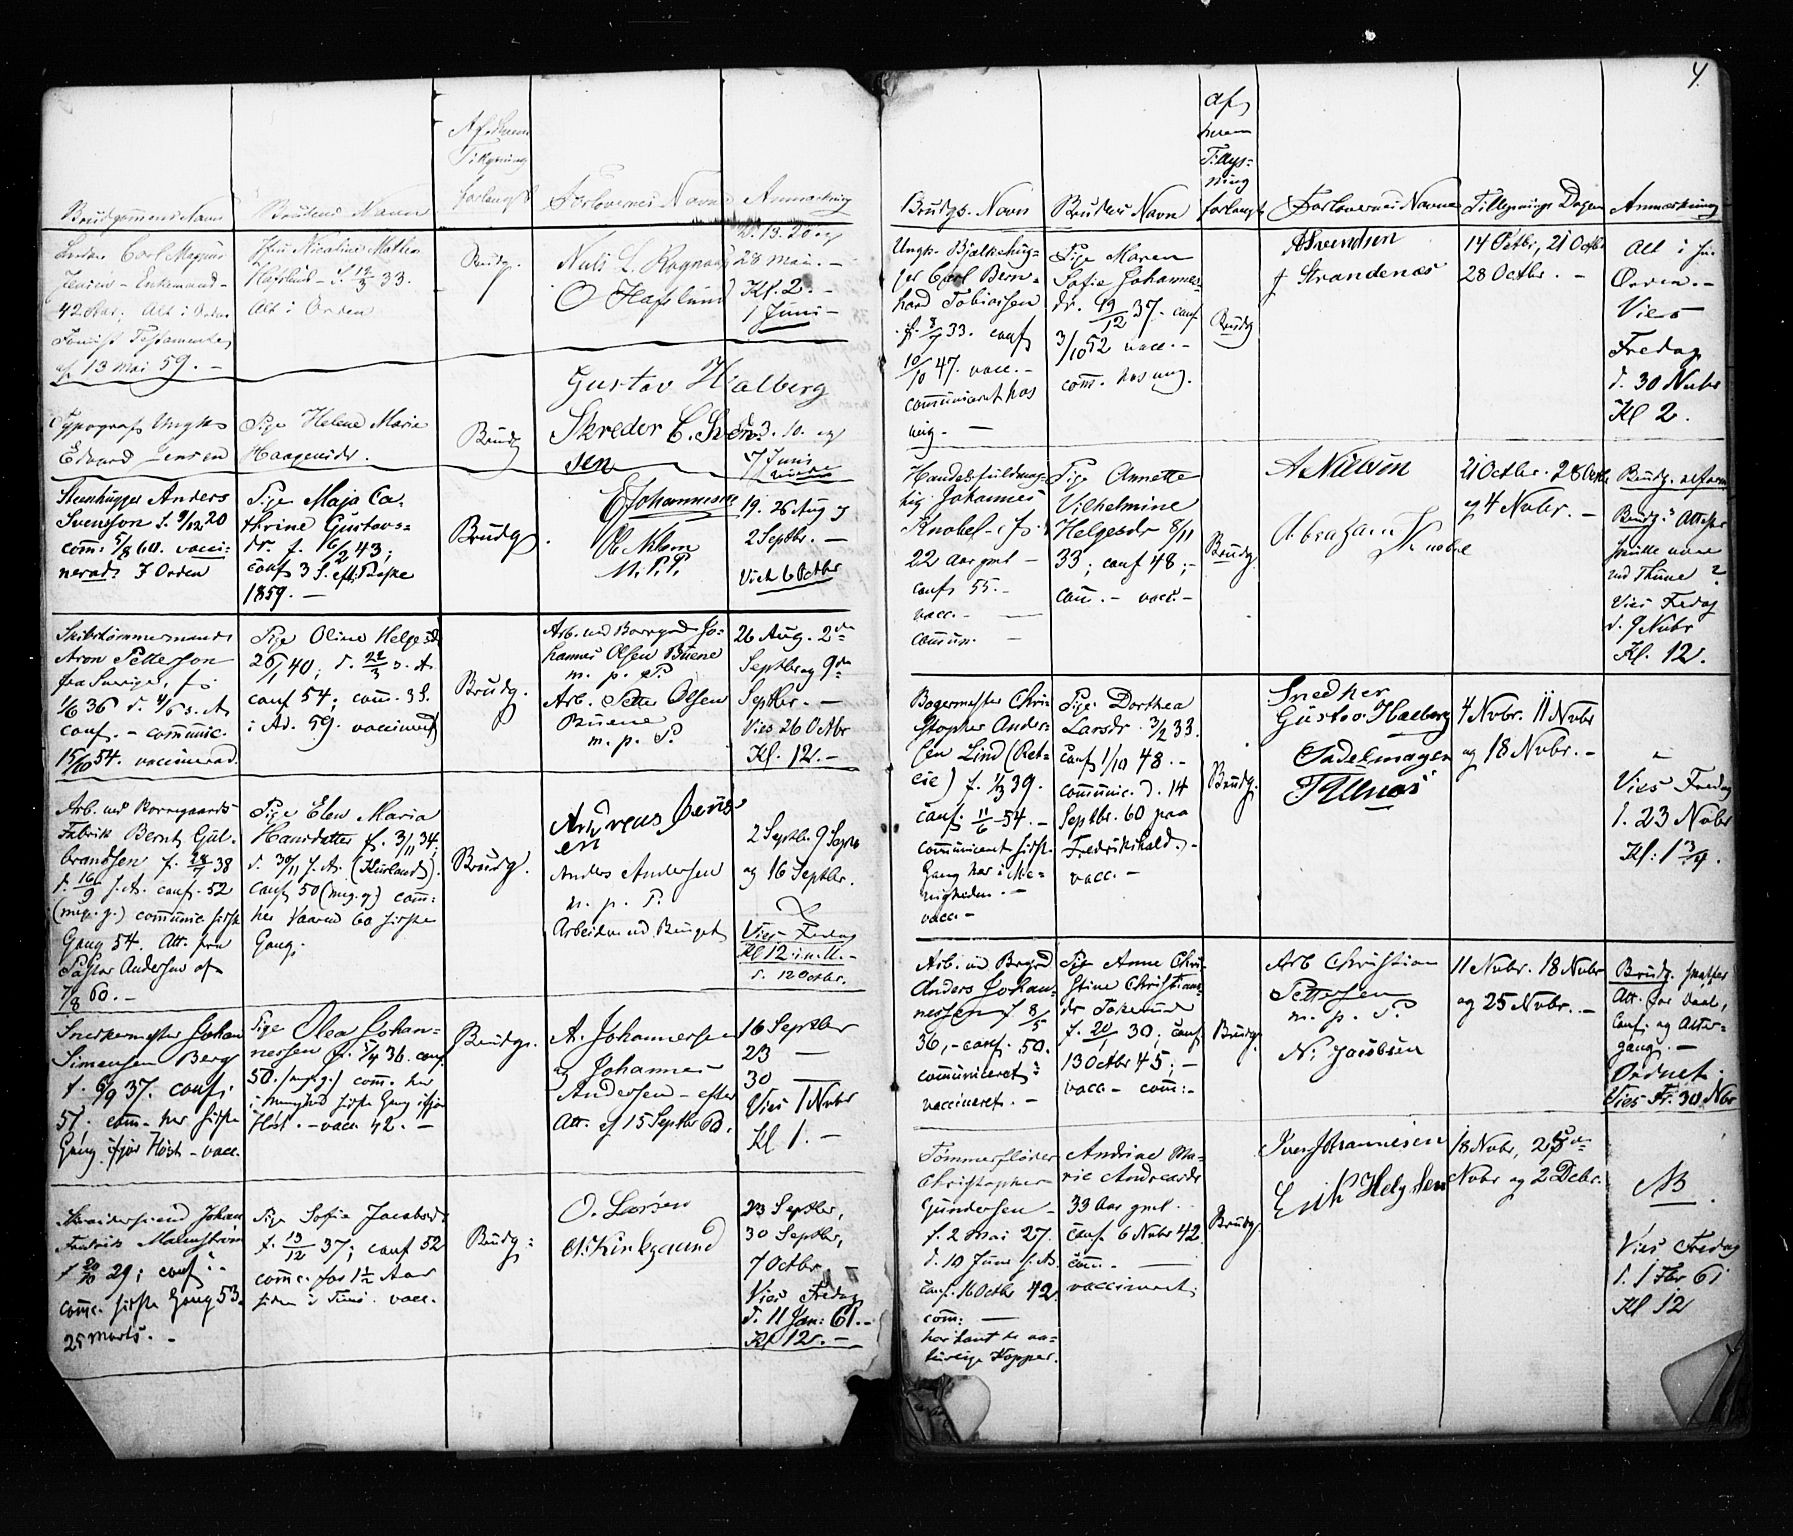 4.
Brudgommens Navn
Brudens Navn
Af hvem
Tillysning
forlangt
Forlovernes Navne
Anmærkning
Carl Magnus
Jensen - Enkemand -
42 Aar; Alt i Orden
Testamente
af 13 Mai 59. -
Nicoline Mathea
Hafslund - f. 12/3 33.
Alt i Orden
Brudg.
Niels L.
O Hafslund
13. 20 og
28 Mai. -
Kl. 2. -
1 Juni -
Typograf Ungk.
Edvard Jensen
Pige Helene Marie
Haagensdr.
Brudg
Gustav Halberg
Skreder C. Sven
sen
3. 10. og
7 Juni
Steenhugger Anders
Svensson f. 9/12 20
com: 5/8 60. vacci-
nerad: I Orden
Pige Maja Ca-
thrine Gustavs-
dr. f. 16/2 43;
conf 3 S. eft: Paaske
1859. -
Brudg.
E Johannesen
M. P. P.
19. 26 Aug og
2 Septbr. -
Viet 6 Octbr
Skibstømmermand
Aron Petterson
fra Sverige, f.
1/6 36 d. 4/6 s. A.
conf. - communic.
15/10 54. vaccinerad.
Pige Oline Helgesd.
26/1 40; d. 22/3 s. A.
conf 54; com. 3 S.
i Ad. 59. vaccineret
Brudg.
Arb. ved Borregaard Jo-
hannes Olsen Buene
m. p. P.
Arb. Petter Olsen
Buene
m. p. P.
26 Aug. 2den
Septbr og 9de
Septbr. -
Vies 26 Octbr
Kl. 12. -
Arb. ved Borregaards
Fabrik Bernt Gul-
brandsen f. 28/7 38
d. 16/9 s. A. conf. 52
(mig. g.) communic. første
Gang 54. Att. fra
Pastor Andersen af
7/8 60. -
Pige Elen Maria
Hansdatter f. 3/11 34;
d. 30/11 s. A.
conf 50 (mig. g) com:
her Vaaren 60 første
Gang.
Brudg.
Andreas Jens
en
Anders Andersen
m. p. P.
2 Septbr. 9 Septbr
og 16 Septbr.
Vies Fredag
Kl 12
d. 12 Octbr.
Snedkermester Johan
Simensen Berg
f. 6/9 37. conf:
51. com. her første
Gang ifjor Høst - vacc.
Pige Olea Johan-
nessen f. 5/4 36. conf
50. (mig. g.) com. her
i Menighed første Gang ifjor
Høst. - vacc. 42. -
Brudg.
A. Johannersen
og Johannes
Andersen - efter
Att. af 15 Septbr 60.
16 Septbr
23 -
30 -
Vies 1 Novbr
Kl. 1. -
Skræddersvend Johan
Fredrik Malmström
f. 20/10 29; conf:
com. første Gang 53.
25 Marts. -
Pige Sofie Jacobsd.
f. 13/12 37; conf 52
com. for 1 1/2 Aar
siden i Tune. vacc.
Brudg:
O. Larsen
A. Kirkgaard
23 Septbr,
30 Septbr,
7 Octbr -
Vies Fredag
d. 11 Jan: 61. -
Kl 12. -
Brudgs. Navn
Brudens Navn
af
hvem
Tillys-
ning
forlangt
Forlovernes Navne
Tillysnings Dagen
Anmærkning
Ungk. Bjælkehug-
ger Carl Bern-
hard Tobiasen
f. 8/7 33. conf
10/10 47. vacc. -
communiceret hos
mig. -
Pige Maren
Sofie Johannes-
dr. 19/12 37. conf
3/10 52 vacc. -
com. hos mig.
Brudg
A Svendsen
f Strandenæs
14 Octbr, 21 Octbr
28 Octbr. -
Alt i sin
Orden. -
Vies
Fredag
d. 30 Nvbr
Kl 2.
Handelsfuldmæg-
tig Johannes
Knobel - f
22 Aar gml -
conf. 55. -
vacc. -
commun. -
Pige Annette
Vilhelmine
Helgesdr 8/11
33; conf 48; -
com. - vacc. -
Brudg.
A Nielsen
Abraham Knobel
21 Octbr. 28 Octbr
og 4 Novbr. -
Brudg.
Brudg.s Attester
skulle være
ved Thune ?
Vies Fredag
d. 9 Nvbr
Kl. 12.
Bagermester Chri-
stopher Ander-
sen Lind
f. 1/3 39.
conf. 11/6 54. -
communiceret første
Gang her i Me-
nigheden. -
vacc. -
Pige Dorthea
Larsdr. 3/2 33.
conf 1/10 48. -
communic. d. 14
Septbr. 60 paa
Fredrikshald. -
vacc. -
Brudg.
Snedker
Gustav Halberg
Sadelmager
4 Nvbr. 11 Nvbr
og 18 Nvbr. -
Vies Fredag
d. 23 Nvbr
Kl: 1 3/4.
Arb. ved Brgrd
Anders Johan-
nessen f 8/5
36, - conf. 50.
communiceret:
vaccineret. -
Pige Anne Chri-
stine Christians-
dr
f. 20/1 30; conf
13 Octbr 45; -
vacc - com: -
Brudg.
Arb Christian
Pettersen
m. p. P.
N. Jacobsen
11 Nvbr. 18 Nvbr
og 25 Nvbr. -
Brudg. skaffer
Att. for Daab,
Conf. og Alter-
gang. -
Ordnet.
Vies Fr. 30 Nvbr
Tømmerfløder
Christopher
Gundersen -
f. 2 Mai 27.
d. 10 Juni s. A.
conf. 16 Octbr 42.
com: -
har havt de na-
turlige Kopper.
Andrine Ma-
rie Andreasdr
33 Aar gml.
conf. 6 Nvbr 42
com. -
vaccineret.
Brudg.
Iver Johannesen
Erik Helgesen
18 Nvbr, 25de
Nvbr og 2 Decbr.
NB.
Vies Fredag
d. 1 Fbr 61
Kl 12